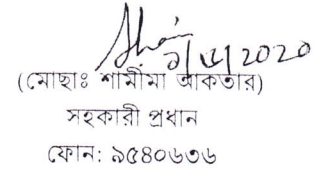 (মোছাঃ শামীমা আকতার)
সহকারী প্রধান
ফোন: ৯৫৪০৬৩৬